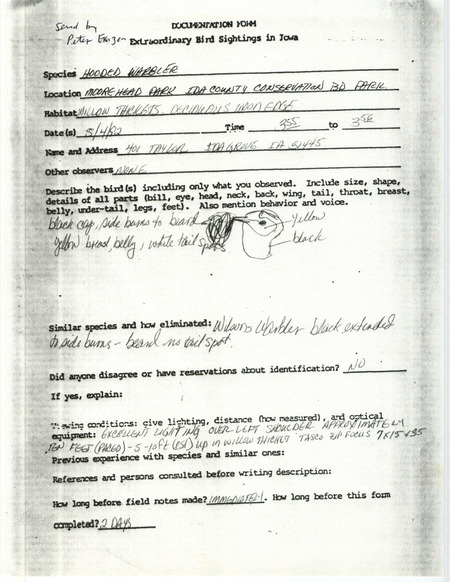 Send by
Peter
DOCUMENTATION FORM
Extraordinary Bird Sightings in Iowa
Species HOODED WARBLER
Location MOOREHEAD PARK IDA COUNTY CONSERVATION BD PARK
Habitat WILLOW THICKETS, DECIDUOUS EDGE
Date(s) 5/4/82 Time 355 to 3
Name and Address 401 TAYLOR IDA GROVE IA 51445
Other observers NONE
Describe the bird(s) including only what you observed. Include size, shape,
details of all parts (bill, eye, head, neck, back, wing, tail, throat, breast,
belly, under-tail, legs, feet). Also mention behavior and voice.
black cap, side burns to beard yellow
yellow breast, belly, white tail spots black
Similar species and how eliminated: Wilsons Warbler black extended
to side burns - beard no tail spot.
Did anyone disagree or have reservations about identification? NO
If yes, explain:
Viewing conditions: give lighting, distance (how measured), and optical
equipment: EXCELLENT LIGHTING OVER LEFT SHOULDER APPROXIMATELY
TEN FEET (PACED) - 5-10 ft (EST) UP IN WILLOW THICKET TASCO ZIP FOCUS 7X15X35
Previous experience with species and similar ones:
References and persons consulted before writing description:
How long before field notes made? IMMEDIATELY. How long before this form
completed? 2 DAYS